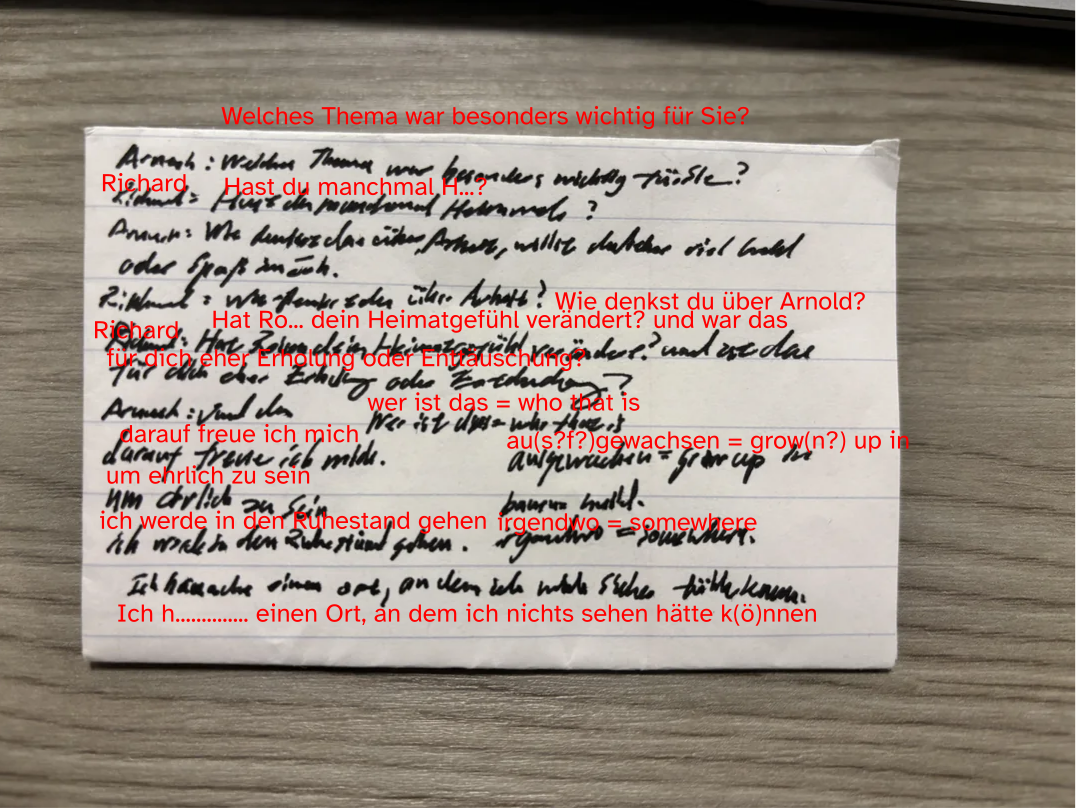 Welches Thema war besonders wichtig für Sie?
Welches Thema war besonders wichtig für Sie?
Richard Hast du manchmal H...?
Richard: Hast du manchmal ?
über Arbeit, willst du lieber viel Geld
oder Spaß
Wie denkst du über Arnold?
Richard: Wie denkst du über Arbeit?
Hat Ro... dein Heimatgefühl verändert? und war das
Richard
Richard: Hat dein Heimatgefühl verändert? und war das
für dich eher Erholung oder Enttäuschung?
für dich eher Erholung oder
wer ist das = who that is
Und du
wer ist das = who that is
darauf freue ich mich
au(s?f?)gewachsen = grow(n?) up in
darauf freue ich mich.
aufgewachsen = grow up in
um ehrlich zu sein
um ehrlich zu sein
ich werde in den Ruhestand gehen
irgendwo = somewhere
ich werde in den Ruhestand gehen.
irgendwo = somewhere.
Ich einen Ort, an dem ich mich sicher fühlen kann.
Ich h.............. einen Ort, an dem ich nichts sehen hätte k(ö)nnen